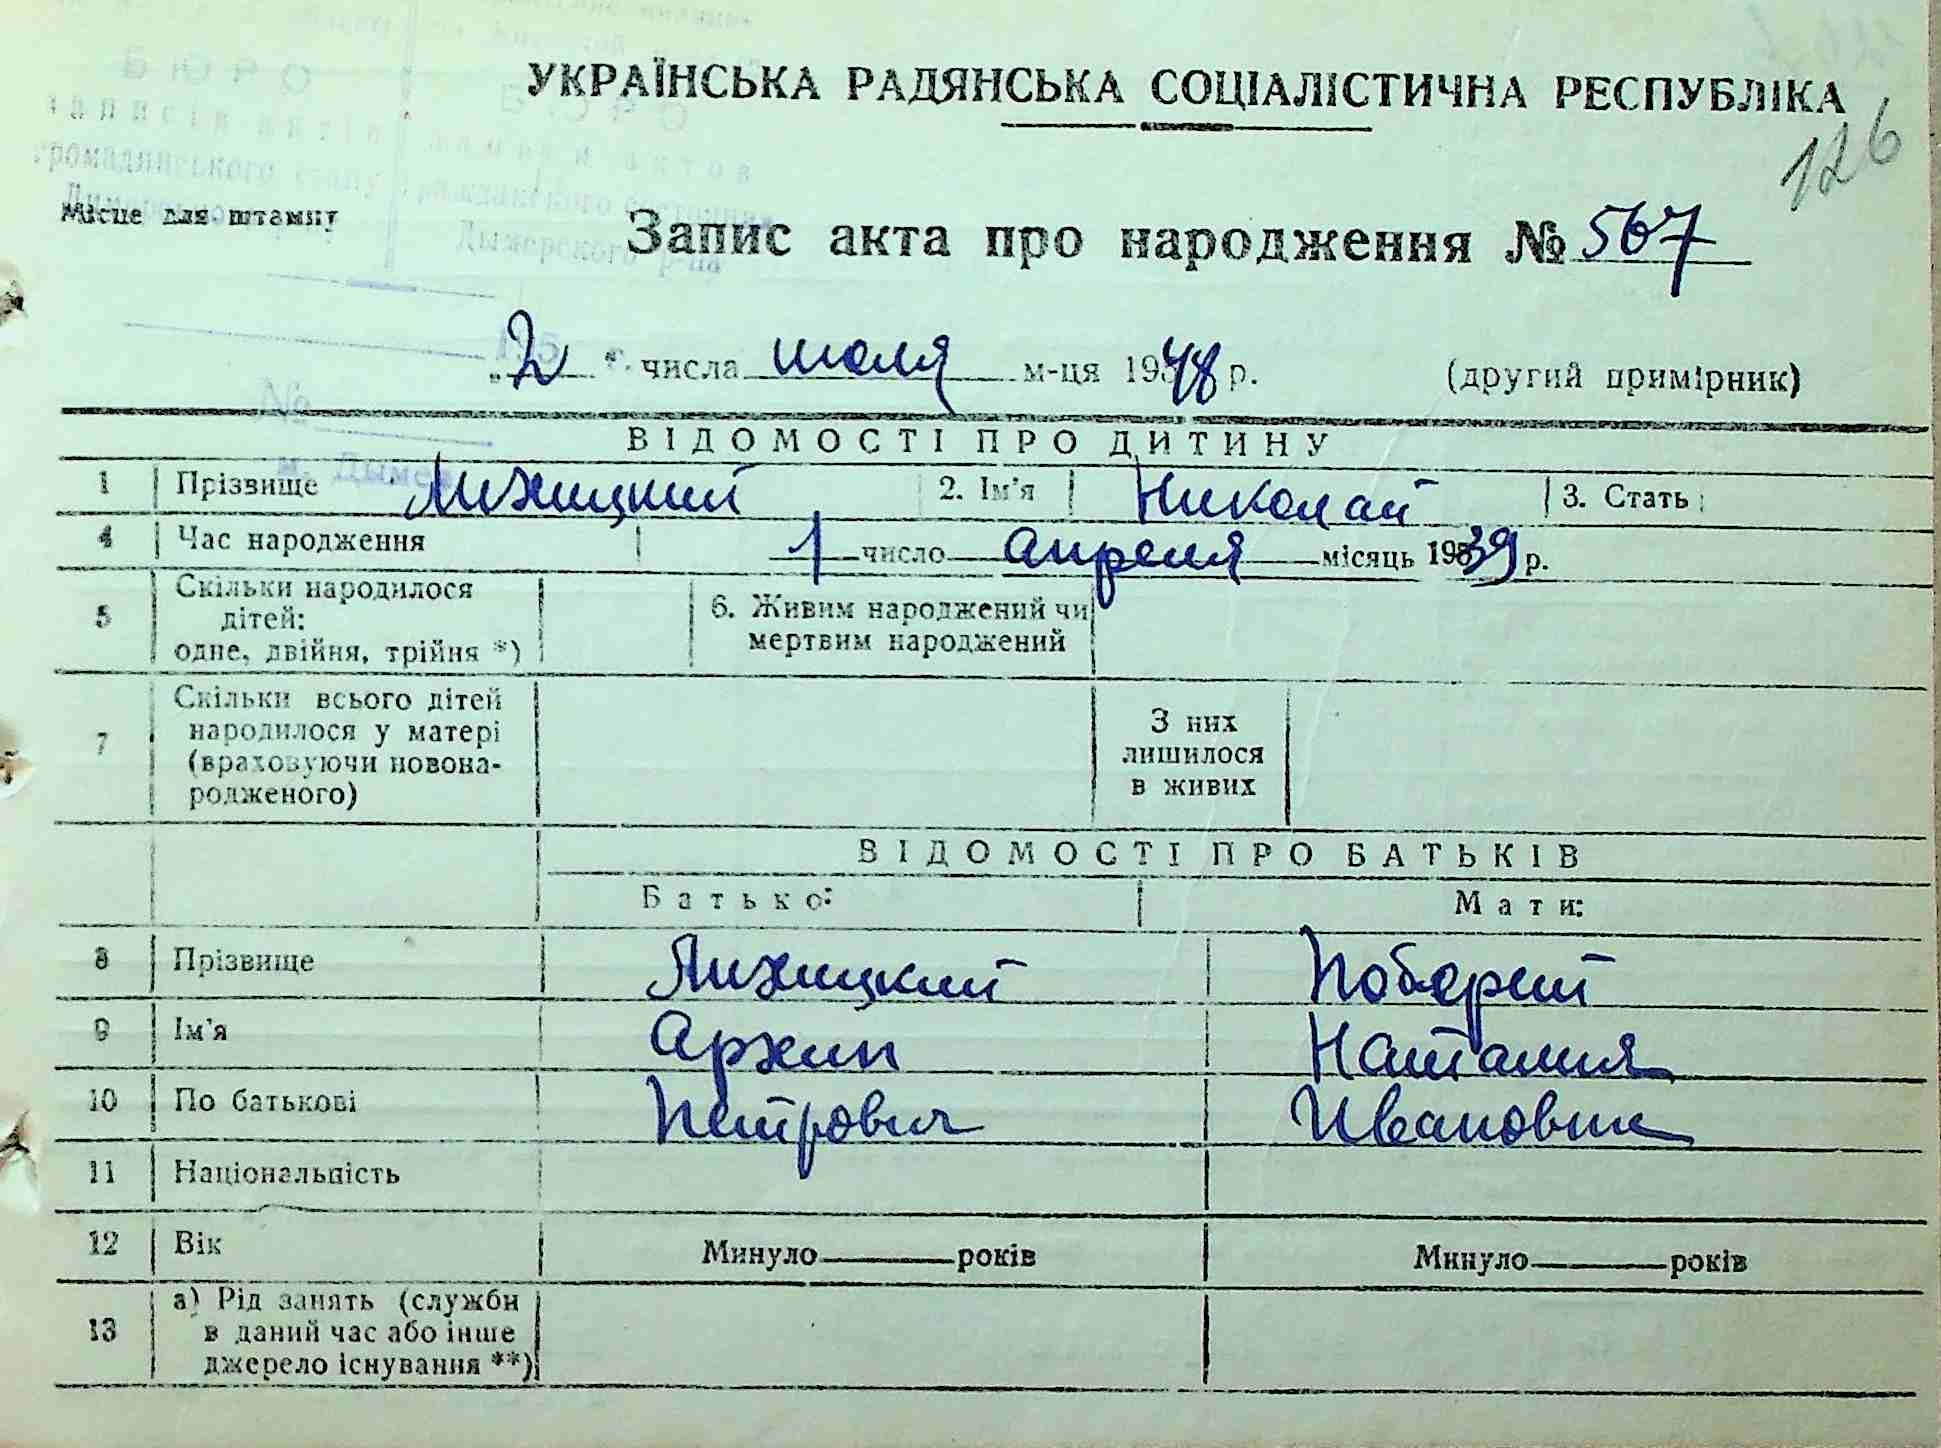 УКРАЇНСЬКА РАДЯНСЬКА СОЦІАЛІСТИЧНА РЕСПУБЛІКА
126
Місце для штампу
БЮРО
записів актів
громадянського стану
БЮРО
записи актов
гражданского состояния
Дымерского р-на
Запис акта про народження № 567
„2" числа июля м-ця 1948 р. (другий примірник)
№
м. Дымер
ВІДОМОСТІ ПРО ДИТИНУ
1 Прізвище Лихицкий 2. Ім'я Николай 3. Стать
4 Час народження 1 число апреля місяць 1939 р.
5 Скільки народилося дітей: одне, двійня, трійня *) 6. Живим народжений чи мертвим народжений
7 Скільки всього дітей народилося у матері (враховуючи новонародженого) З них лишилося в живих
ВІДОМОСТІ ПРО БАТЬКІВ
Батько: Мати:
8 Прізвище Лихицкий
9 Ім'я Архип Наталия
10 По батькові Петрович Ивановна
11 Національність
12 Вік Минуло років Минуло років
13 а) Рід занять (служби в даний час або інше джерело існування **)